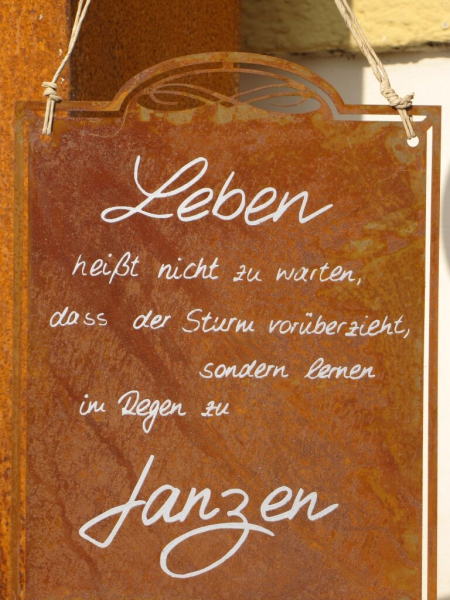 Leben
heißt nicht zu warten,
dass der Sturm vorüberzieht,
sondern lernen
im Regen zu
Tanzen